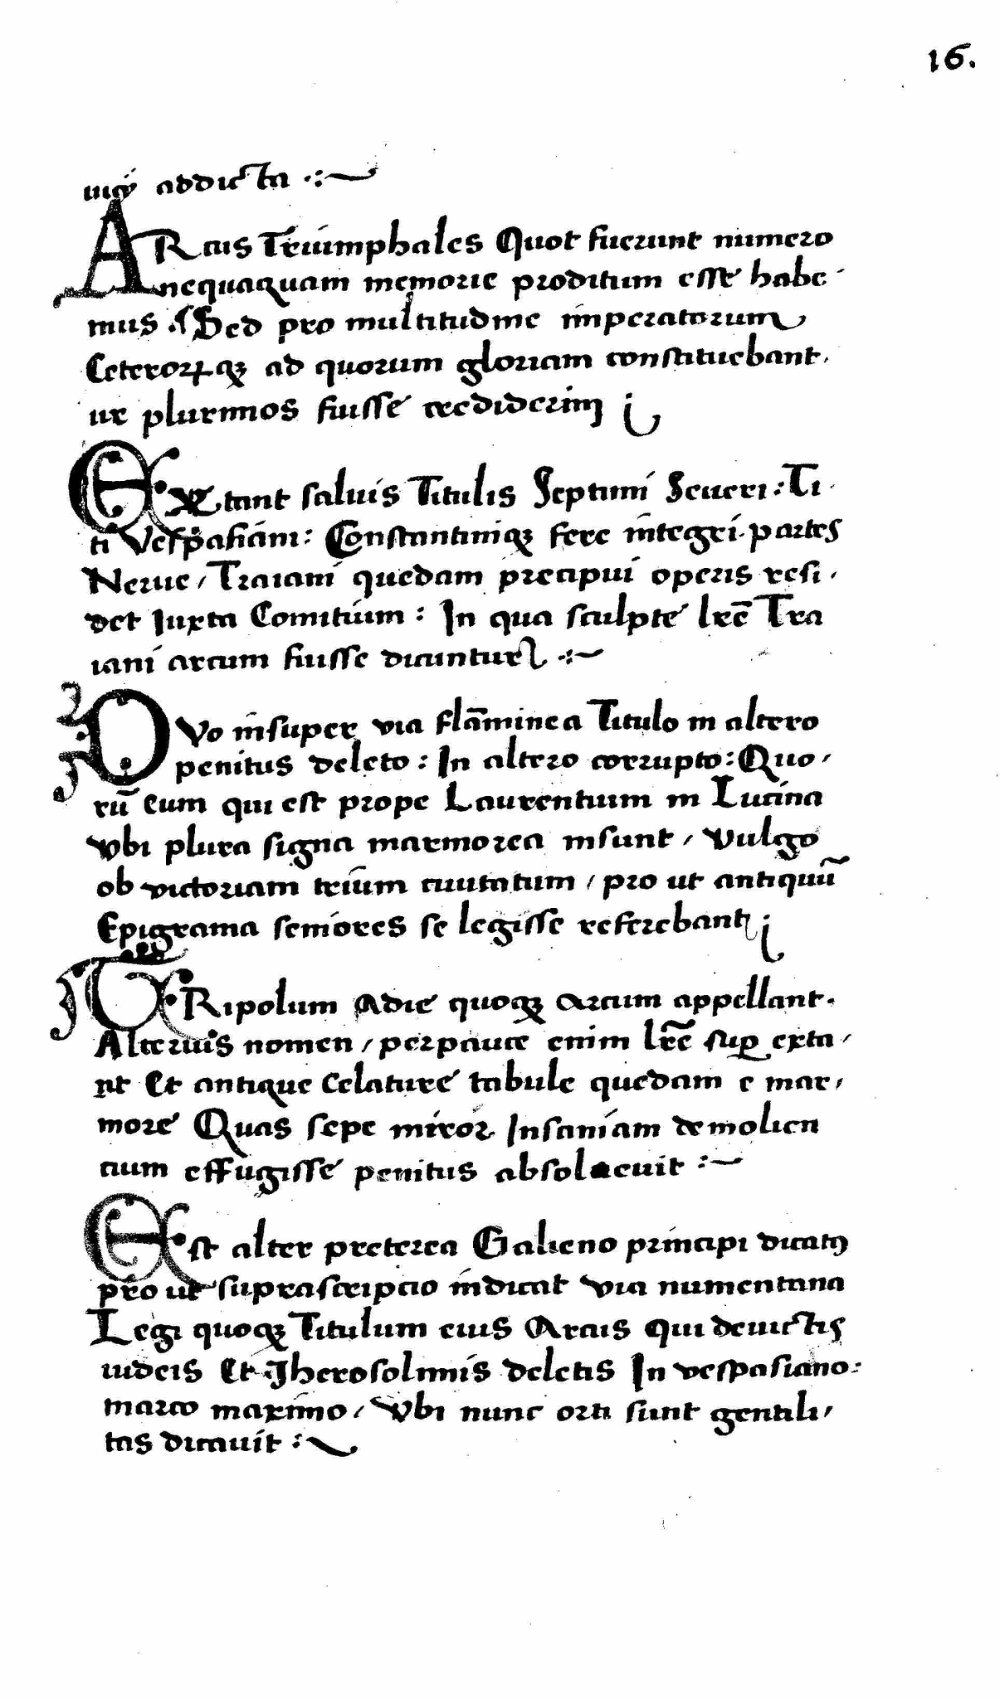 16.
nicꝫ addicta
ARcus Triumphales Quot fuerunt numero
nequaquam memorie proditum esse habe
mus. Sed pro multitudine imperatorum
Ceteroꝝqꝫ ad quorum gloriam constituebant,
ur plurimos fuisse crediderim ;
EXtant saluis Titulis Septimi Seueri: Ti
ti Vespasiani: Constantiniqꝫ fere integri. partes
Nerue, Traiani quedam precipui operis resi,
det Iuxta Comitium: In qua sculpte lr̄e Tra
iani arcum fuisse dicuntur
DVo insuper via flāminea Titulo in altero
penitus deleto: In altero corrupto: Quo,
rū Eum qui est prope Laurentium in Lucina
vbi plura signa marmorea insunt, Vulgo
ob victoriam trium ciuitatum, pro ut antiquū
Epigrama seniores se legisse referebant ;
TRipolum Adie quoqꝫ Arcum appellant.
Alterius nomen, perpauce enim lr̄e suꝑ exta,
nt Et antique Celature tabule quedam e mar,
more Quas sepe miror Insaniam demolien
cium effugisse penitus absoleuit :~
Est alter preterea Galieno principi dicatꝰ
pro ut suprascripcio indicat via numentana
Legi quoqꝫ Titulum eius Arcus qui deuictis
iudeis Et Jherosolimis deletis In vespasiano:
marco maximo, Vbi nunc orti sunt gentili,
tas dicauit :~